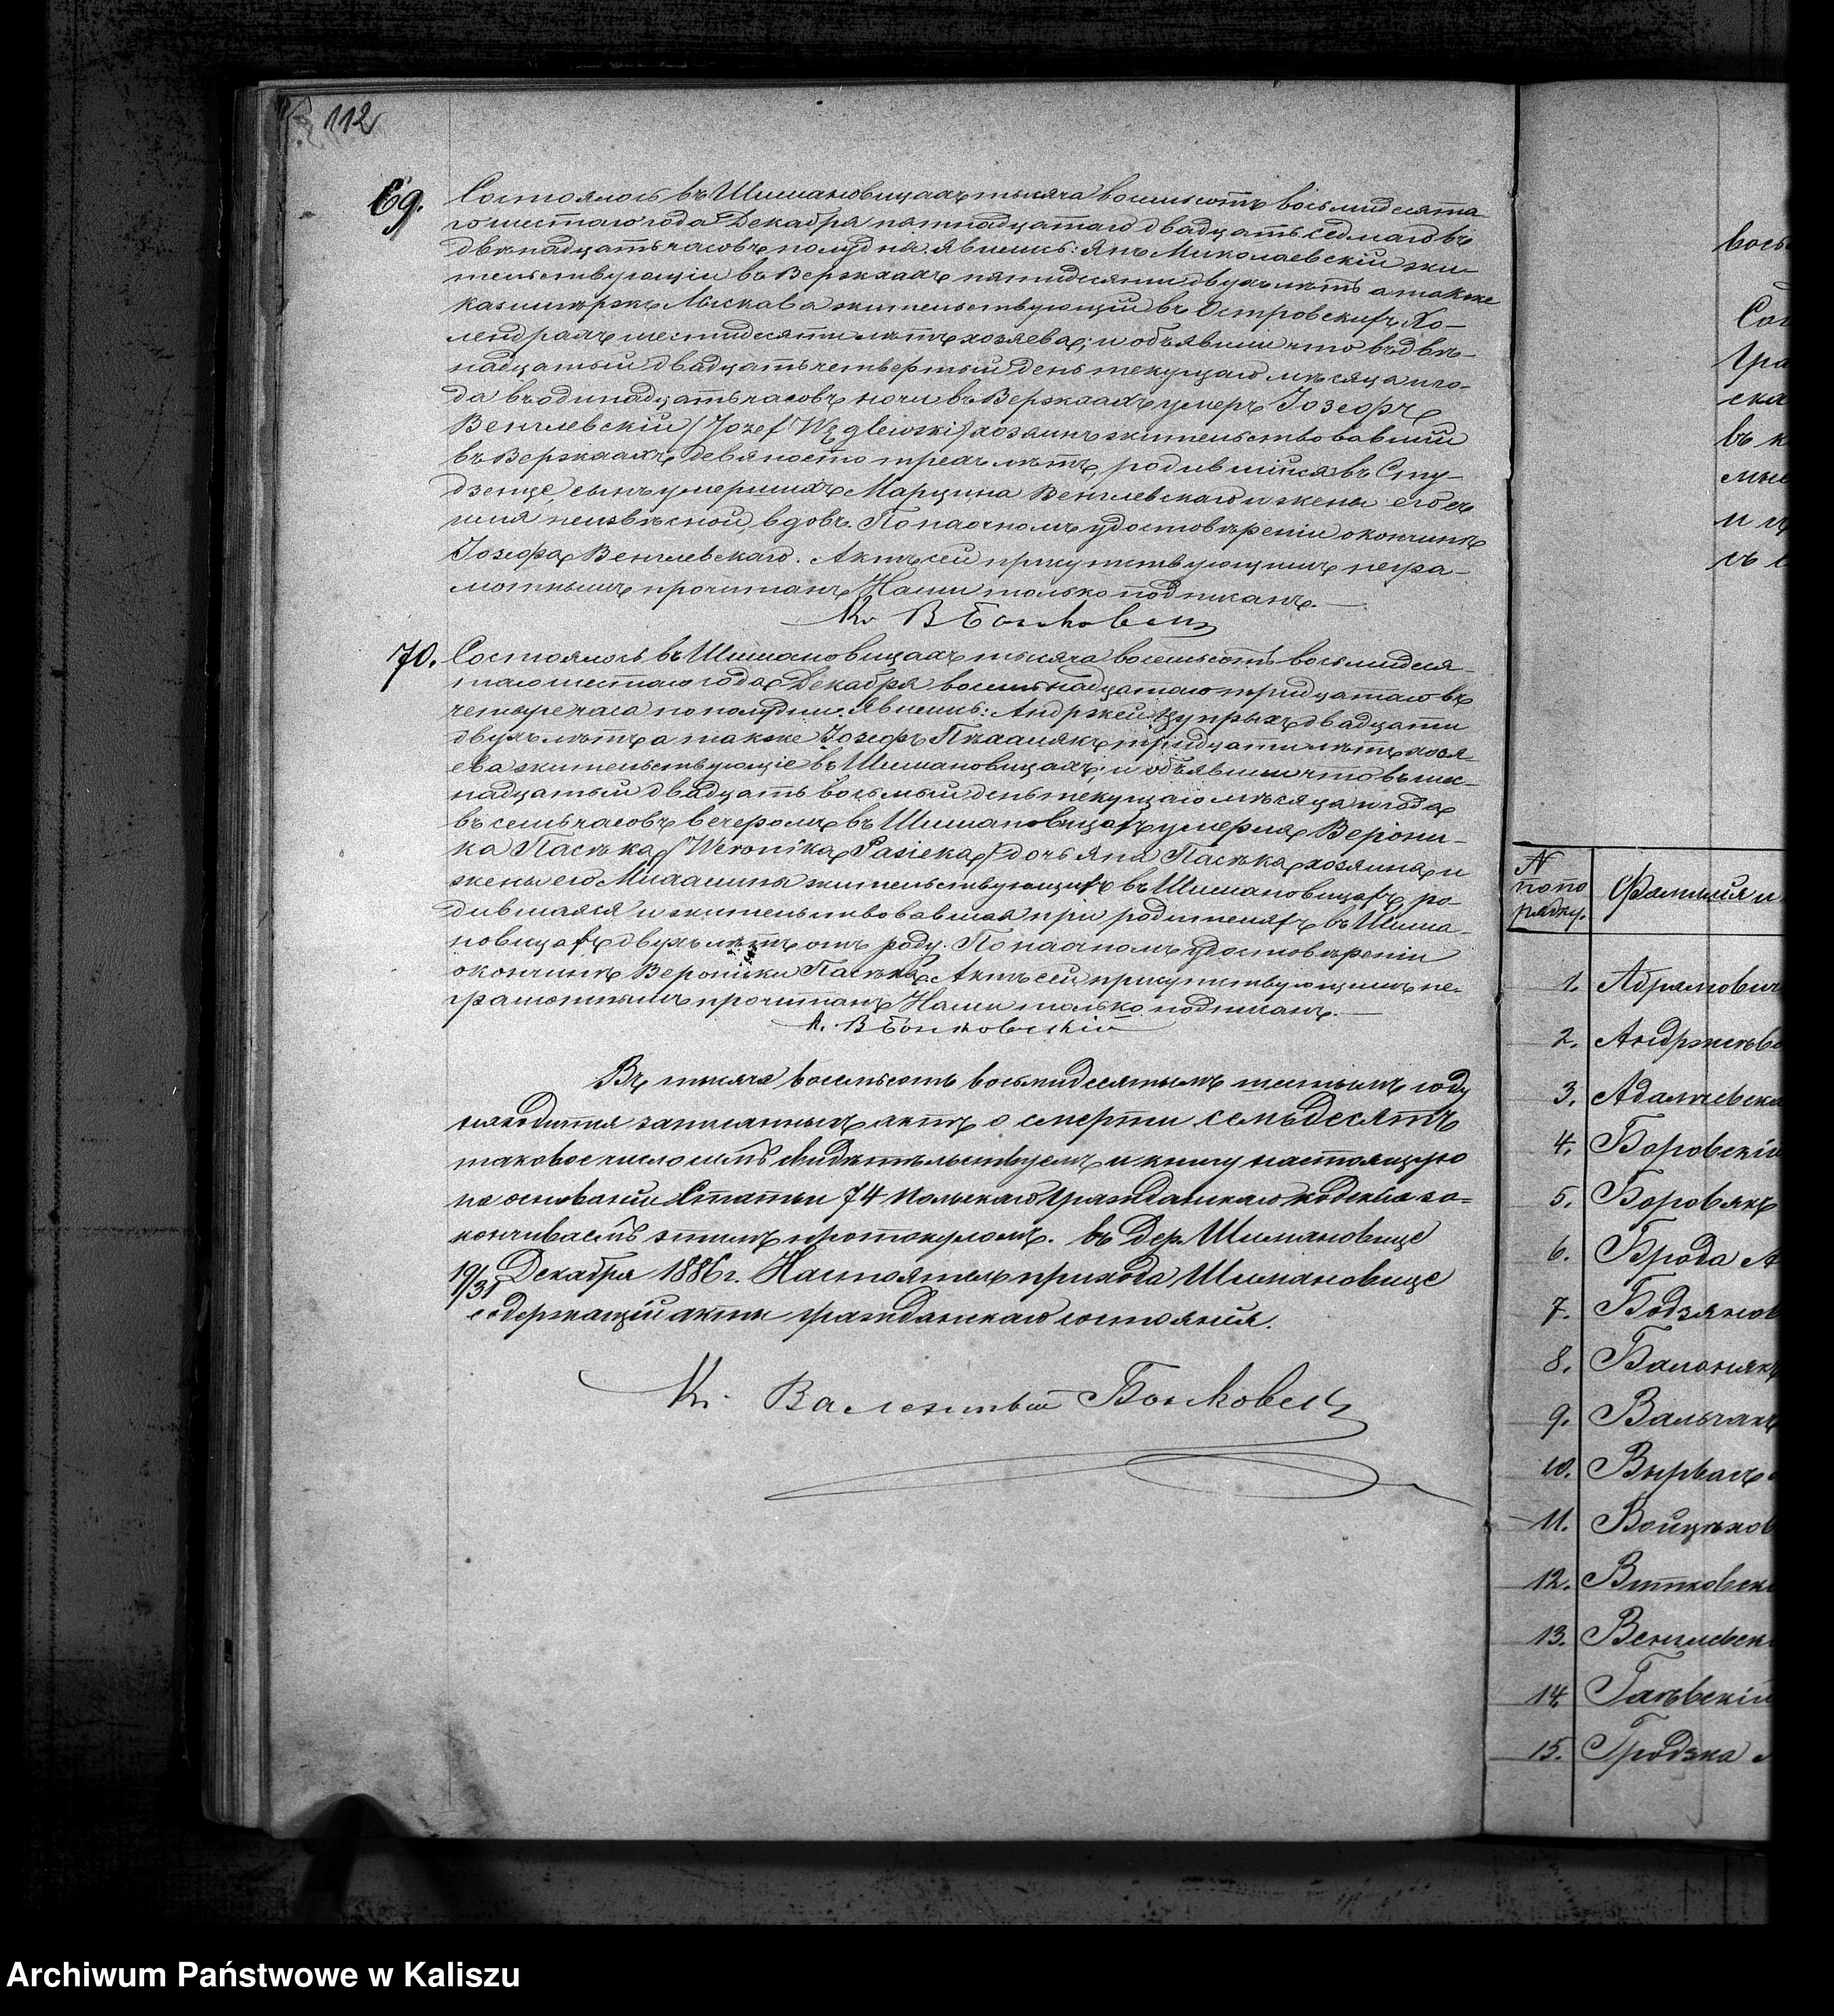 112
69. Состоялось въ Шимановицахъ тысяча восемьсотъ восьмидесята-
го шестаго года Декабря пятнадцатаго двадцать седмаго въ
двѣнадцать часовъ полудня. Явились: Янъ Миколаевскій жи-
тельствующій въ Вержхахъ пятидесяти двухъ лѣтъ а также
Казимѣржъ жительствующій въ Островскихъ Хо-
лендрахъ шестидесяти лѣтъ хозяева; и объявили что въ двѣ-
надцатый двадцать четвертый день текущаго мѣсяца и го-
да въ одинадцать часовъ ночи въ Вержхахъ умеръ Іозефъ
Венглевскій (Jozef Węglewski) хозяинъ жительствовавшій
въ Вержхахъ девяносто трехъ лѣтъ, родившійся въ Сту-
дзенце, сынъ умершихъ Марцина Венглевскаго и жены его съ
имя неизвѣсной, вдовъ. По наочномъ удостовѣреніи о кончинѣ
Іозефа Венглевскаго. Актъ сей присутствующимъ негра-
мотнымъ прочитанъ Нами только подписанъ.—
Кс. В Бонковски
70. Состоялось въ Шимановицахъ тысяча восемьсотъ восьмидеся-
таго шестаго года Декабря восемнадцатаго тридцатаго въ
четыре часа по полудни. Явились: Анджей Цупрыхъ двадцати
двухъ лѣтъ а также Іозефъ тридцати лѣтъ хозя-
ева жительствующіе въ Шимановицахъ; и объявили что въ шес-
надцатый двадцать восьмый день текущаго мѣсяца и года
въ семь часовъ вечеромъ въ Шимановицахъ умерла Верони-
ка Пасѣка, (Weronika Pasieka) дочь Яна Пасѣка, хозяина и
жены его Михалины жительствующихъ въ Шимановицахъ, ро-
дившаяся и жительствовавшая при родителяхъ въ Шима-
новицахъ двухъ лѣтъ отъ роду. По наочномъ удостовѣреніи
о кончинѣ Вероники Пасѣка, Актъ сей присутствующимъ не-
грамотнымъ прочитанъ Нами только подписанъ.—
К. В Бонковскій
Въ тысяча восемьсотъ восьмидесятымъ шестымъ году
находится записанныхъ актъ о смерти семьдесятъ
таковое число симъ свидѣтельствуемъ и книгу настоящую
на основаніи Статьи 74 Польскаго Гражданскаго кодекса за=
кончиваемъ этимъ протокуломъ. въ дер. Шимановице
19/31 Декабря 1886 г. Настоятель прихода Шимановице
содержащій акты гражданскаго состоянія.
Кс. Валентый Бонковски
вось
Сос
Гра
ска
въ к
N
по по
рядку.
Фамилія и
1. Абрамович
2. Андржеевс
3. Адамчевска
4. Боровскій
5. Боровякъ
6. Брода А
7. Бодзянов
8. Балонякъ
9. Вальчакъ
10. Вырвасъ
11. Войцѣхов
12. Витковски
13. Венглевск
14. Гаевскій
15. Гродзка
Archiwum Państwowe w Kaliszu